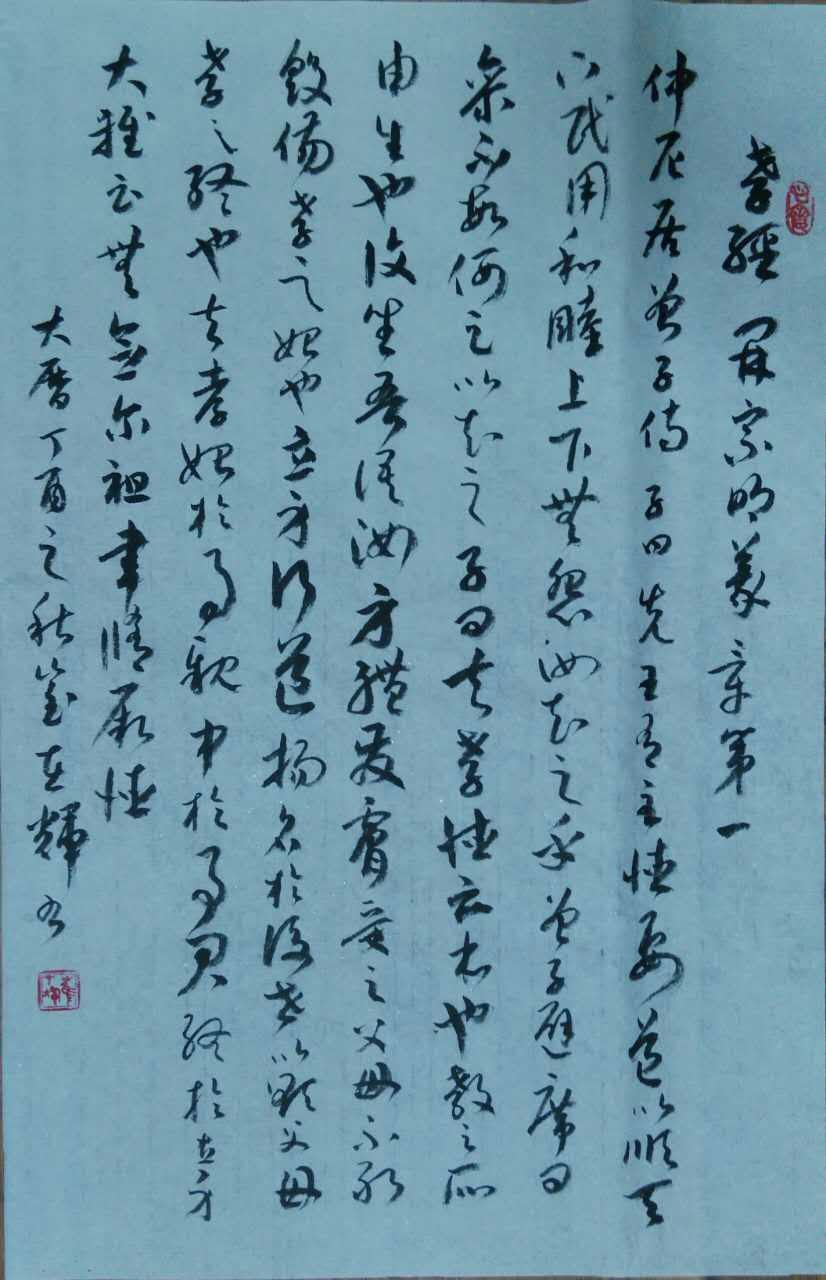 孝經 開宗明義章第一
仲尼居曾子侍子曰先王有至德要道以順天
下民用和睦上下無怨汝知之乎曾子避席曰
參不敏何足以知之子曰夫孝德之本也教之所
由生也復坐吾語汝身體髮膚受之父母不敢
毀傷孝之始也立身行道揚名於後世以顯父母
孝之終也夫孝始於事親中於事君終於立身
大雅云無念尔祖聿脩厥德
大曆丁酉之秋輝书